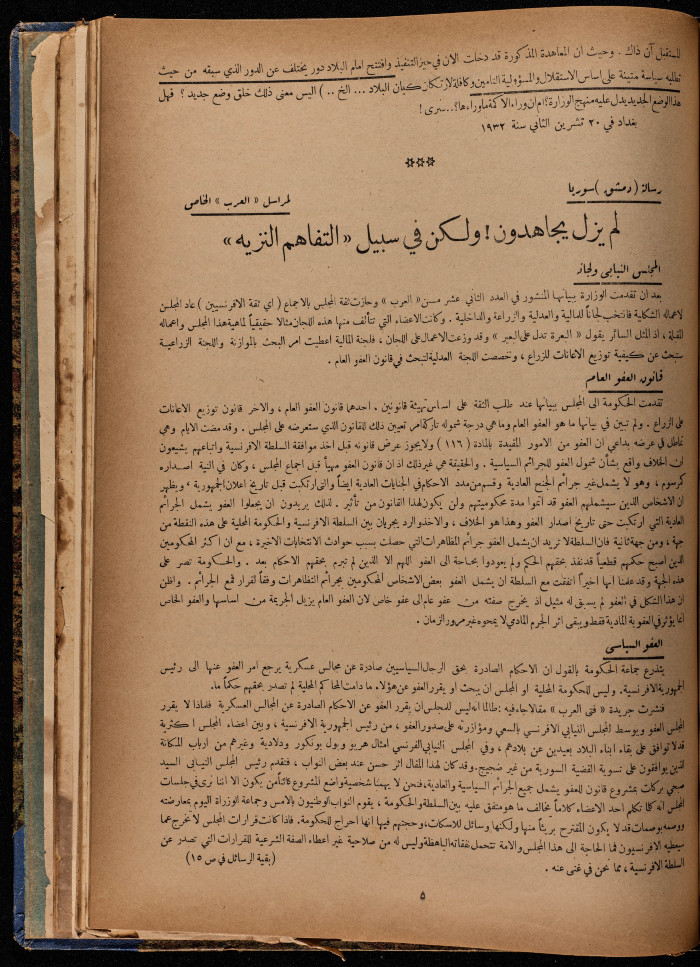 للمستقبل آن ذاك . وحيث ان المعاهدة المذكورة قد دخلت الان في حيز التنفيذ وافتتح امام البلاد دور يختلف عن الدور الذي سبقه من حيث
تطلبه سياسة متينة على اساس الاستقلال والمسؤولية التامين وكافلة لارتكاز كيان البلاد ... الخ .. ) اليس معنى ذلك خلق وضع جديد ؟ فهل
هذا الوضع الجديد يدل عليه منهج الوزارة ؟ ام ان وراء الاكمة ما وراءها ؟..سنرى !
بغداد في ٢٠ تشرين الثاني سنة ١٩٣٢
***
رسالة ( دمشق ) سوريا
لمراسل « العرب » الخاص
لم يزل يجاهدون ! ولكن في سبيل « التفاهم النزيه »
المجلس النيابي ولجانه
بعد ان تقدمت الوزارة ببيانها المنشور في العدد الثاني عشر من « العرب » وحازت ثقة المجلس بالاجماع ( اي ثقة الافرنسيين ) عاد المجلس
لاعماله الشكلية فانتخب لجاناً للمالية والعدلية والزراعة والداخلية . وكانت الاعضاء التي تتألف منها هذه اللجان مثالا حقيقياً لماهية هذا المجلس واعماله
المقبلة ، اذ المثل السائر يقول « البعرة تدل على البعير » وقد وزعت الاعمال على اللجان ، فلجنة المالية اعطيت امر البحث بالموازنة واللجنة الزراعيـة
ستبحث عن كيفية توزيع الاعانات للزراع ، وتخصصت اللجنة العدلية لتبحث في قانون العفو العام .
قانون العفو العام
تقدمت الحكومة الى المجلس ببيانها عند طلب الثقة على اساس تهيئة قانونين . احدهما قانون العفو العام ، والاخر قانون توزيع الاعانات
على الزراع . ولم تبين في بيانها ما هو العفو العام وما هي درجة شموله تاركة امر تعيين ذلك للقانون الذي ستعرضه على المجلس . وقد مضت الايام وهي
تماطل في عرضه بداعي ان العفو من الامور المقيدة بالمادة ( ١١٦ ) ولا يجوز عرض قانونه قبل اخذ موافقة السلطة الافرنسية واتباعهم يشيعون
ان الخلاف واقع بشأن شمول العفو للجرائم السياسية . والحقيقة هي غير ذلك اذ ان قانون العفو مهيأ قبل اجماع المجلس ، وكان في النية اصداره
كرسوم ، وهو لا يشمل غير جرائم الجنح العادية وقسم من مدد الاحكام في الجنايات العادية ايضاً والتي ارتكبت قبل تاريخ اعلان الجمهورية ، ويظهر
ان الاشخاص الذين سيشملهم العفو قد اتموا مدة محكوميتهم ولن يكون لهذا القانون من تأثير . لذلك يريدون ان يجعلوا العفو يشمل الجرائم
العادية التي ارتكبت حتى تاريخ اصدار العفو وهذا هو الخلاف ، والاخذ والرد يجريان بين السلطة الافرنسية والحكومة المحلية على هذه النقطة من
جهة ، ومن جهة ثانية فان السلطة لا تريد ان يشمل العفو جرائم المظاهرات التي حصلت بسبب حوادث الانتخابات الاخيرة ، مع ان اكثر المحكومين
الذين اصبح حكمهم قطعياً قد نفذ بحقهم الحكم ولم يعودوا بحاجة الى العفو اللهم الا الذين لم تبرم بحقهم الاحكام بعد . والحكومة تصر على
هذه الجهة وقد علمنا انها اخيراً اتفقت مع السلطة ان يشمل العفو بعض الاشخاص المحكومين بجرائم التظاهرات وفقاً لقرار قمع الجرائم . واظن
ان هذا الشكل في العفو لم يسبق له مثيل اذ يخرج صفته من عفو عام الى عفو خاص لان العفو العام يزيل الجريمة من اساسها والعفو الخاص
انما يؤثر في العقوبة المادية فقط ويبقى اثر الجرم المادي لا يمحوه غير مرور الزمان .
العفو السياسي
يتذرع جماعة الحكومة بالقول ان الاحكام الصادرة بحق الرجال السياسيين صادرة عن مجالس عسكرية يرجع امر العفو عنها الى رئيس
الجمهورية الافرنسية. وليس للحكومة المحلية او المجلس ان يبحث او يقرر العفو عن هؤلاء. ما دامت المحاكم المحلية لم تصدر بحقهم حكماً ما.
فنشرت جريدة « فتى العرب » مقالا جاء فيه : طالما انه ليس للمجلس ان يقرر العفو عن الاحكام الصادرة عن المجالس العسكرية فلماذا لا يقرر
المجلس العفو ويوسط المجلس النيابي الافرنسي بالسعي ومؤازرته على صدور العفو ، من رئيس الجمهورية الافرنسية ، وبين اعضاء المجلس اكثرية
قد لا توافق على بقاء ابناء البلاد بعيدين عن بلادهم ، وفي المجلس النيابي الفرنسي امثال هريو وبول بونكور ودلاديه وغيرهم من ارباب المكانة
الذين يوافقون على تسوية القضية السورية من غير ضجيج. وقد كان لهذا المقال اثر حسن عند بعض النواب ، فتقدم رئيس المجلس النيابـي السيد
صبحي بركات بمشروع قانون للعفو يشمل جميع الجرائم السياسية والعادية، فنحن لا يهمنا شخصية واضع المشروع كائناً من يكون الا اننا نرى في جلسات
المجلس انه كلما تكلم احد الاعضاء كلاماً يخالف ما هو متفق عليه بين السلطة والحكومة ، يقوم النواب الوطنيون بالامس وجماعة الوزراة اليوم بمعارضته
ووصمه بوصمات قد لا يكون المقترح بريئاً منها ولكنها وسائل للاسكات، وحجتهم فيها انها احراج للحكومة. فاذا كانت قرارات المجلس لا تخرج عما
سيعطيه الافرنسيون فما الحاجة الى هذا المجلس والامة تتحمل نفقاته الباهظة وليس له من صلاحية غير اعطاء الصفة الشرعية للقرارات التي تصدر عن
السلطة الافرنسية ، مما نحن في غنى عنه .
(بقية الرسائل في ص ١٥)
٥